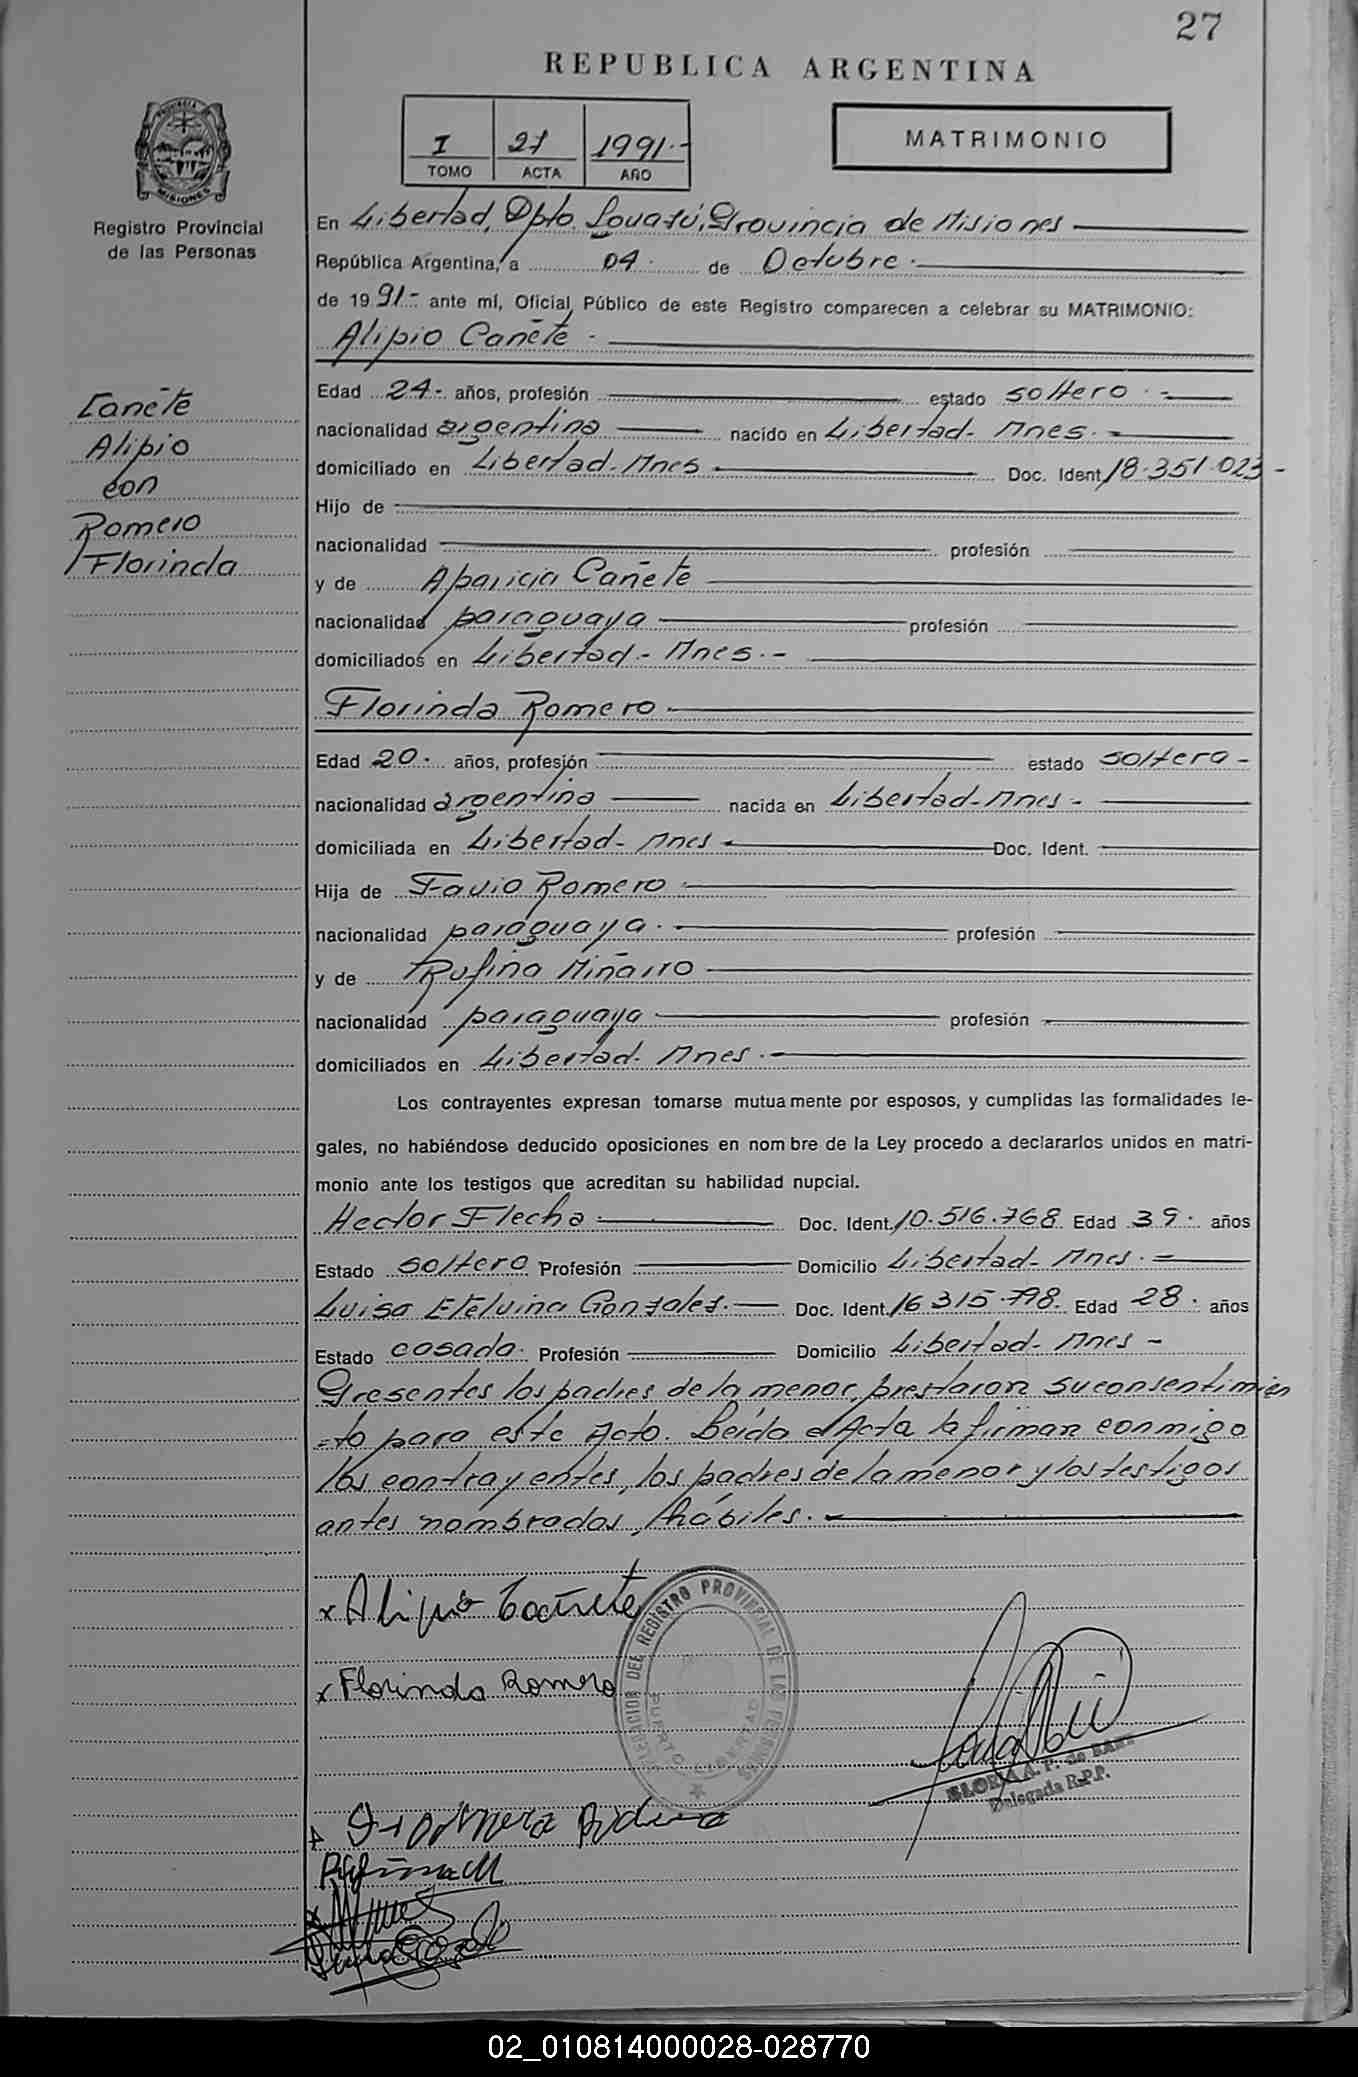 27
REPUBLICA ARGENTINA
I 27 1991.-
TOMO ACTA AÑO
MATRIMONIO
PROVINCIA
MISIONES
Registro Provincial
de las Personas
En Libertad, Dpto. Iguazú, Provincia de Misiones
República Argentina, a 04. de Octubre.
de 1991.- ante mí, Oficial Público de este Registro comparecen a celebrar su MATRIMONIO:
Alipio Cañete.
Cañete
Alipio
con
Romero
Florinda
Edad 24.- años, profesión estado soltero.-
nacionalidad argentina nacido en Libertad- Mnes.
domiciliado en Libertad- Mnes Doc. Ident. 18.351.023-
Hijo de
nacionalidad profesión
y de Aparicia Cañete
nacionalidad paraguaya profesión
domiciliados en Libertad.- Mnes.-
Florinda Romero.
Edad 20. años, profesión estado soltera-
nacionalidad argentina nacida en Libertad-Mnes.
domiciliada en Libertad- Mnes Doc. Ident.
Hija de Favio Romero.
nacionalidad paraguaya. profesión
y de Rufina Miñarro
nacionalidad paraguaya profesión
domiciliados en Libertad. Mnes.
Los contrayentes expresan tomarse mutuamente por esposos, y cumplidas las formalidades le-
gales, no habiéndose deducido oposiciones en nombre de la Ley procedo a declararlos unidos en matri-
monio ante los testigos que acreditan su habilidad nupcial.
Hector Flecha. Doc. Ident. 10.516.768 Edad 39. años
Estado soltero Profesión Domicilio Libertad- Mnes.
Luisa Etelvina Gonzalez. Doc. Ident. 16 315.798. Edad 28. años
Estado casada. Profesión Domicilio Libertad- Mnes -
Presentes los padres de la menor, prestaron su consentimien
-to para este Acto. Leída el Acta la firman conmigo
los contrayentes, los padres de la menor y los testigos
antes nombrados, hábiles.
x Alipio Cañete
x Florinda Romero
DELEGACION DEL REGISTRO PROVINCIAL DE LAS PERSONAS
PUERTO LIBERTAD
GLORIA A. P. de
Delegada R.P.P.
Rufina M
02_010814000028-028770